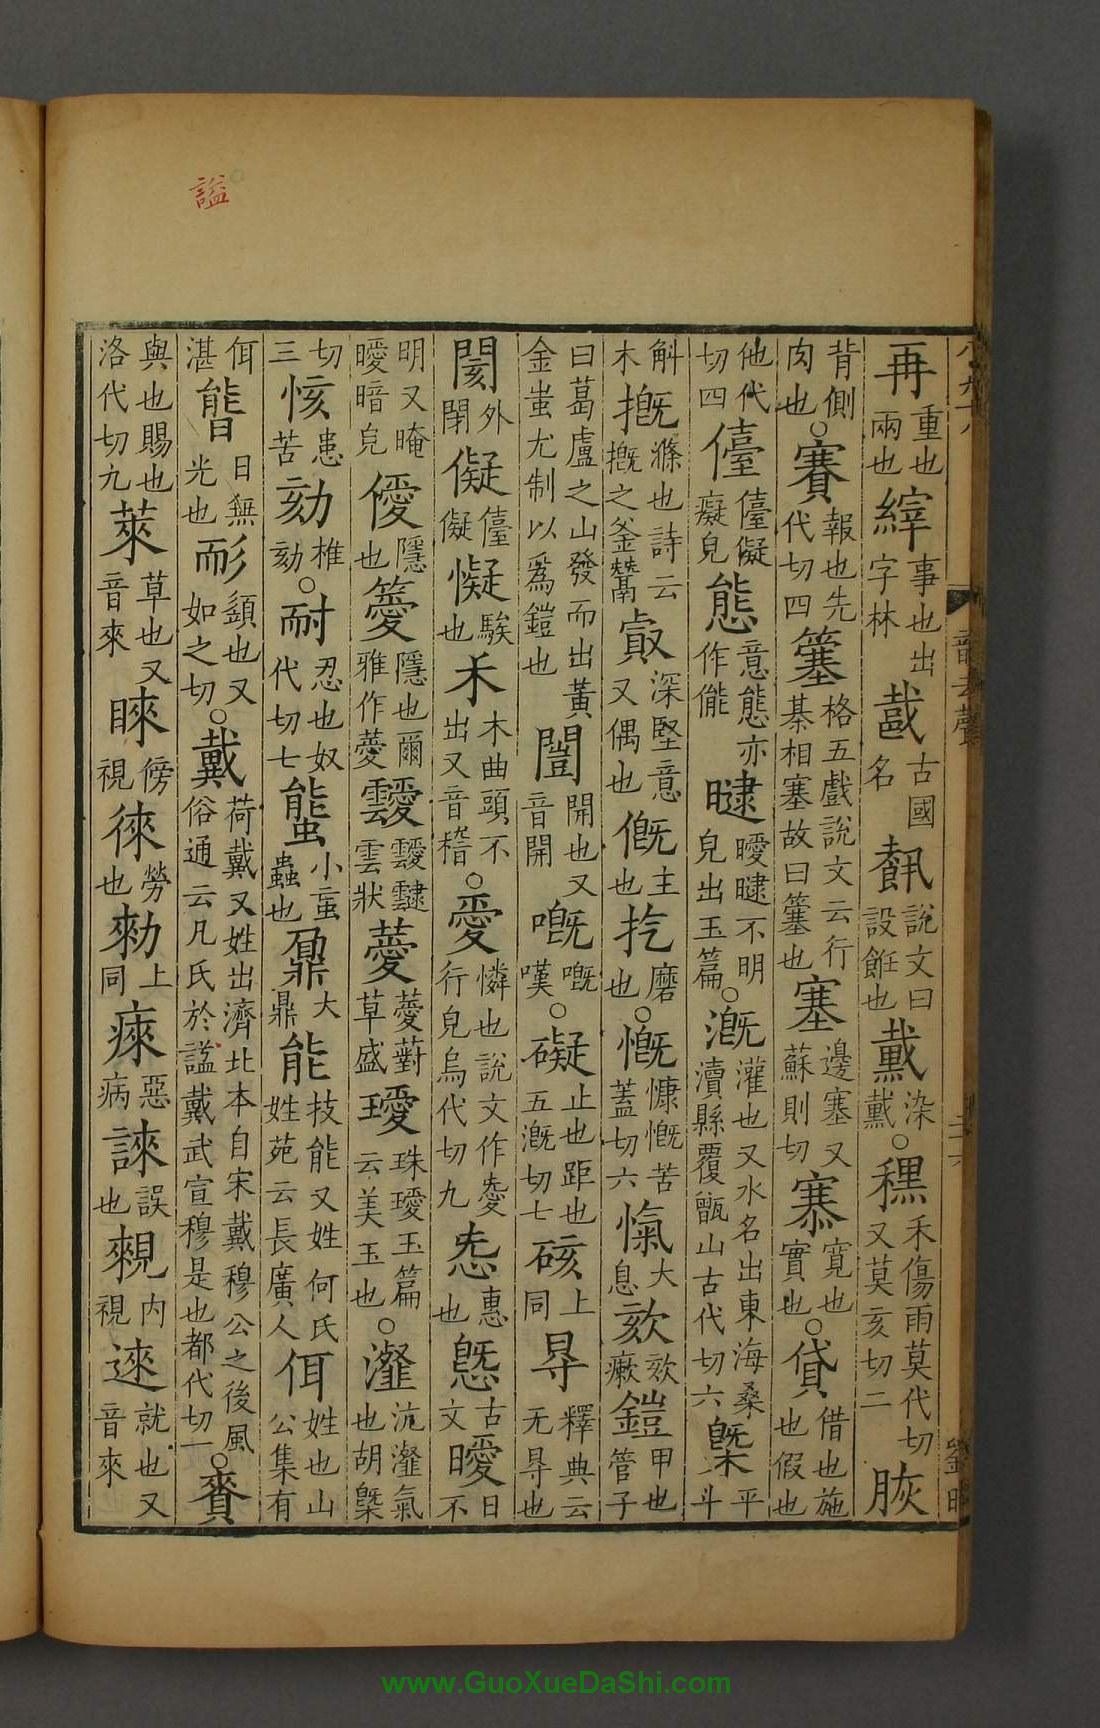 謚
再重也兩也縡事也出字林䵧古國名𩚳說文曰設飪也黱染黱○䆀禾傷雨莫代切又莫亥切二脄
背側肉也○賽報也先代切四簺格五戲說文云行棊相塞故曰簺也塞邊塞又蘇則切寨實也寬也○貸借也施也假也
他代切四儓儓儗癡皃態意態亦作㑷曃曖曃不明皃出玉篇○溉灌也又水名出東海桑瀆縣覆甑山古代切六槩平斗
斛木摡滌也詩云摡之釜鬵㕢深堅意又偶也㮣主也扢磨也○慨慷慨苦蓋切六愾大息欬欬瘶鎧甲也管子
曰葛盧之山發而出黃金蚩尤制以爲鎧也闓開也又音開嘅嘅嘆○礙止也距也五漑切七硋上同㝵釋典云无㝵也
閡外閉儗儓儗懝騃也禾木曲頭不出又音稽○愛憐也說文作㤅行皃烏代切九㤅惠也㤅古文曖日不
明又晻曖暗皃僾隱也薆隱也爾雅作薆靉靉靆雲狀薆薆薱草盛璦珠璦玉篇云美玉也○瀣沆瀣氣也胡槩
切三㤥患苦劾推劾○耐忍也奴代切七螚小䖟蟲也鼐大鼎能技能又姓何氏姓苑云長廣人佴姓也山公集有
佴湛䏻日無光也耏頦也又如之切○戴荷戴又姓出濟北本自宋戴穆公之後風俗通云凡氏於謚戴武宣穆是也都代切一○賚
與也賜也洛代切九萊草也又音來睞傍視徠勞也勑上同㾢惡病誺誤也覝內視逨就也又音來
www.GuoXueDaShi.com